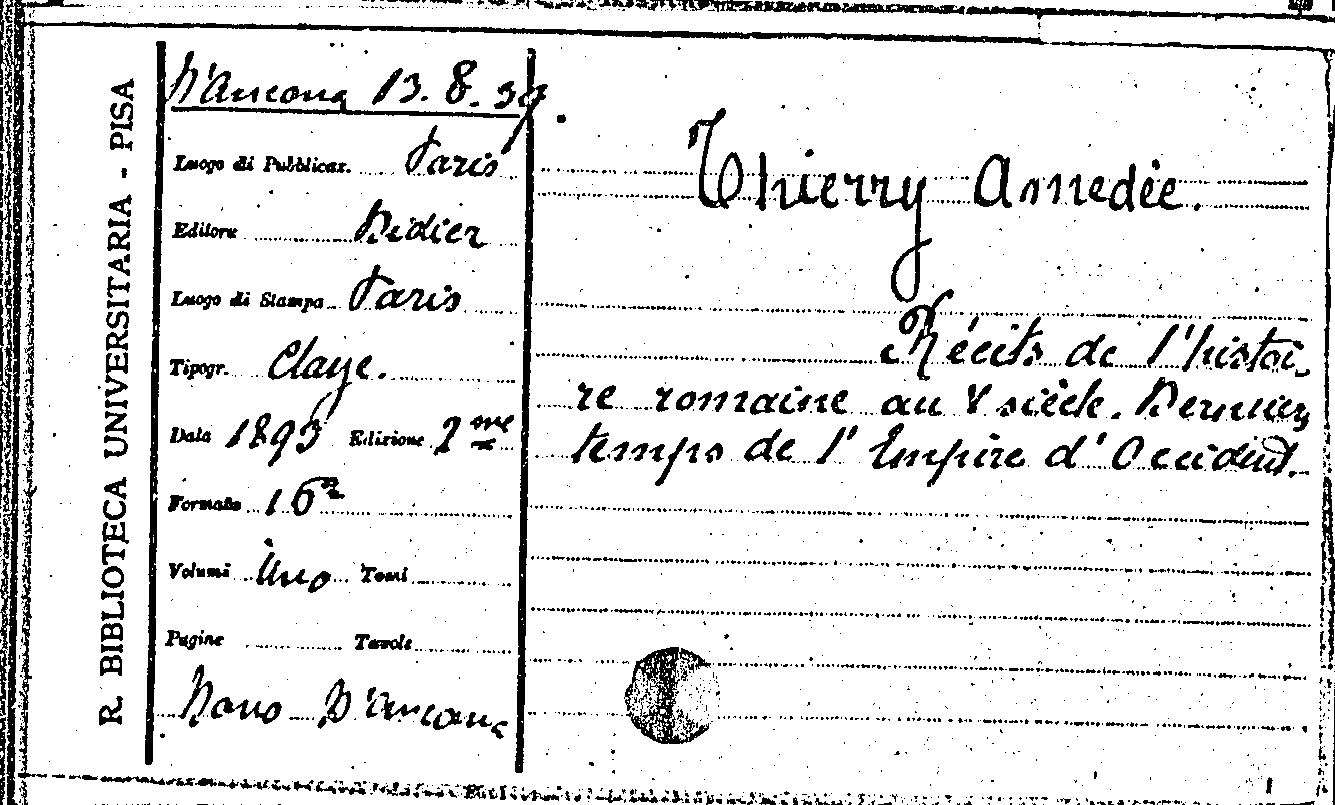 R. BIBLIOTECA UNIVERSITARIA - PISA
D'Ancona 13. 8. 39.
Luogo di Pubblicaz. Paris
Editore Didier
Luogo di Stampa Paris
Tipogr. Claye.
Data 1893 Edizione 2me
Formato 16°
Volumi Uno Tomi
Pagine Tavole
Dono D'Ancona
Thierry Amedée.
Récits de l'histoi-
re romaine au V siècle. Derniers
temps de l'Empire d'Occident.